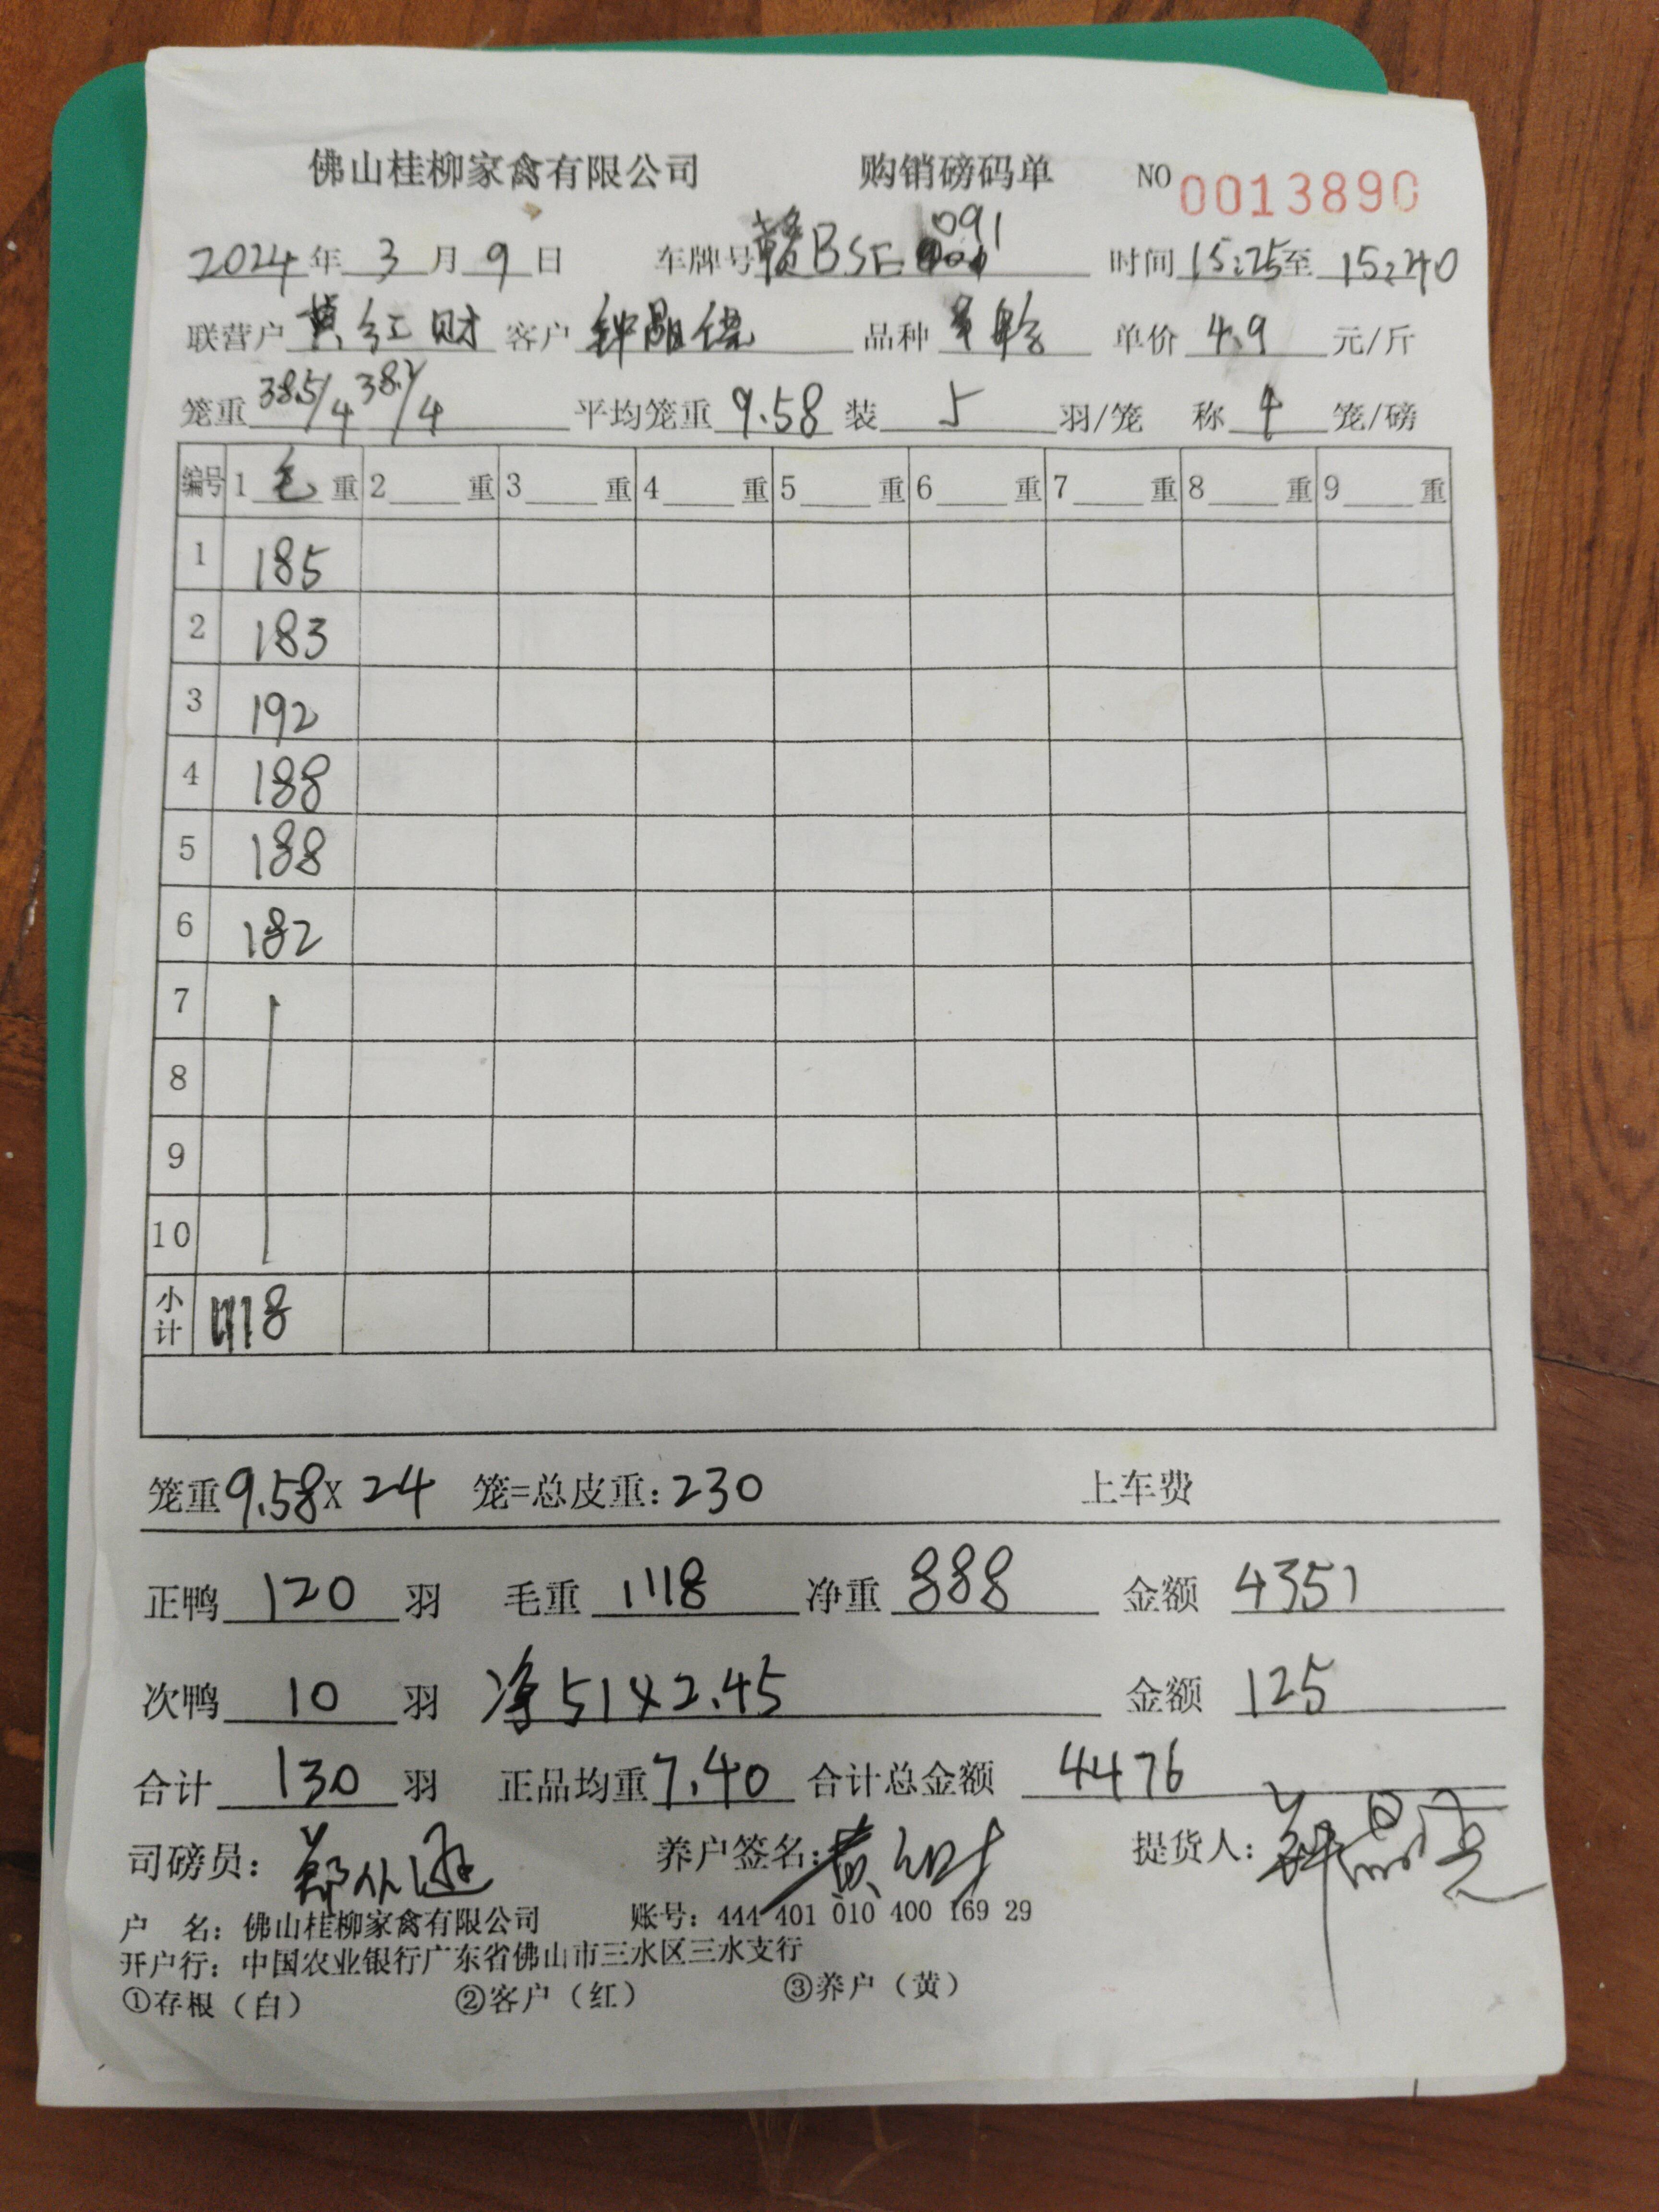 佛山桂柳家禽有限公司 购销磅码单 NO 0013890
2024年3月9日 车牌号赣BSE091 时间15:25至15:40
联营户黄红财 客户钟 品种 单价4.9元/斤
笼重38.5/4 38.2/4 平均笼重9.58装5羽/笼 称4笼/磅
编号 1毛重 2重 3重 4重 5重 6重 7重 8重 9重
1 185
2 183
3 192
4 188
5 188
6 182
7
8
9
10
小计 1118
笼重9.58X24 笼=总皮重:230 上车费
正鸭120羽 毛重1118 净重888 金额4351
次鸭10羽 净51X2.45 金额125
合计130羽 正品均重7.40 合计总金额4476
司磅员: 郑 养户签名:黄红财 提货人:钟
户 名:佛山桂柳家禽有限公司 账号:444 401 010 400 169 29
开户行:中国农业银行广东省佛山市三水区三水支行
①存根(白) ②客户(红) ③养户(黄)